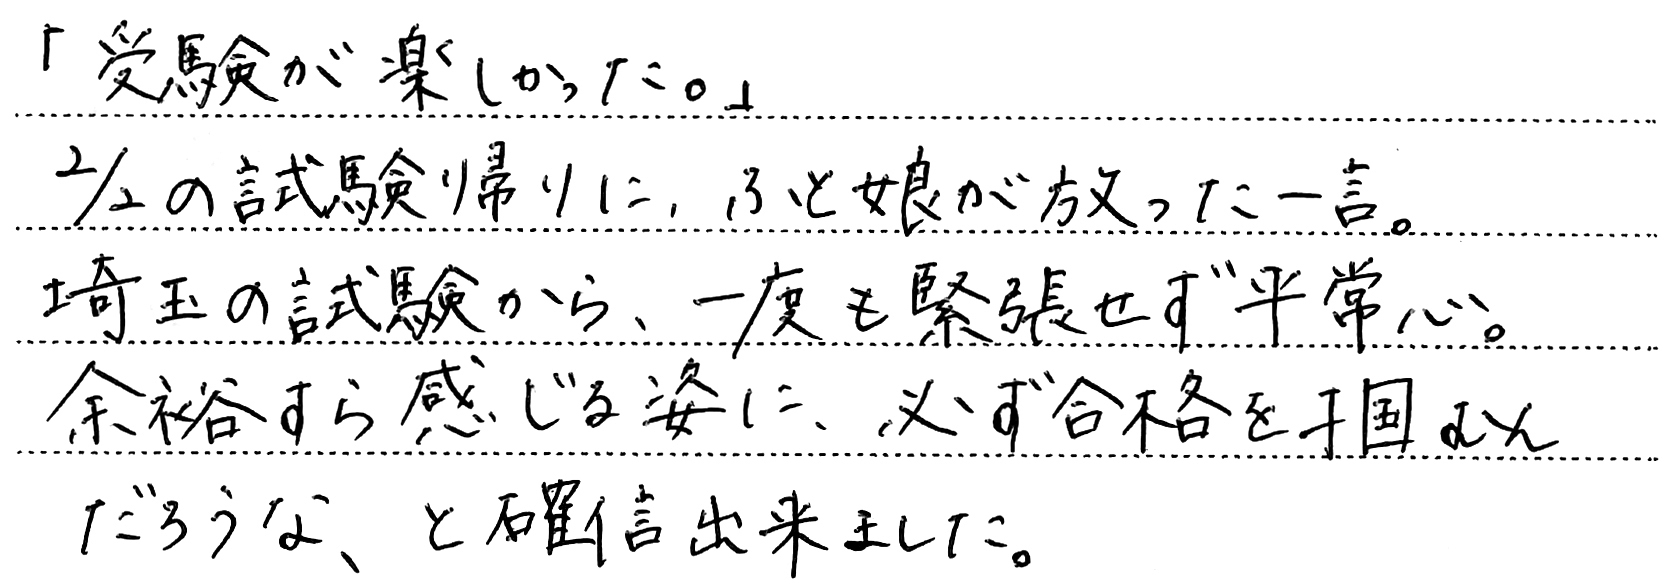 「受験が楽しかった。」
2/2の試験帰りに、ふと娘が放った一言。
埼玉の試験から、一度も緊張せず平常心。
余裕すら感じる姿に、必ず合格を掴むん
だろうな、と確信出来ました。